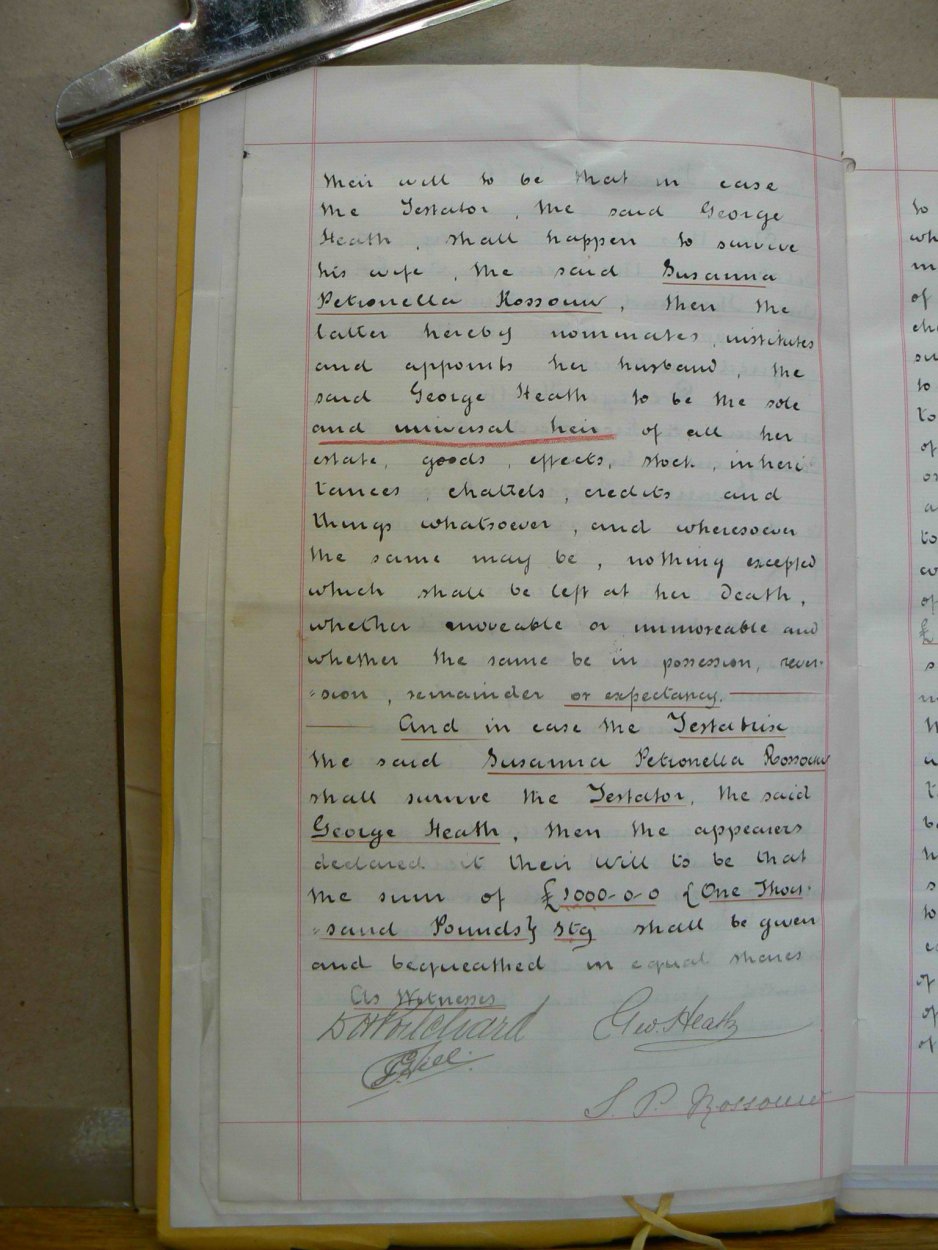 their will to be that in case
the Testator, the said George
Heath, shall happen to survive
his wife, the said Susanna
Petronella Rossouw, then the
latter hereby nominates, institutes
and appoints her husband, the
said George Heath to be the sole
and universal heir of all her
estate, goods, effects, stock, inheri
tances, chattels, credits and
things whatsoever, and wheresoever
the same may be, nothing excepted
which shall be left at her Death,
whether moveable or immoveable and
whether the same be in possession, rever-
-sion, remainder or expectancy.
And in case the Testatrix
the said Susanna Petronella Rossouw
shall survive the Testator, the said
George Heath, then the appearers
declared it their Will to be that
the sum of £1000-0-0 {One Thou-
-sand Pounds} Stg shall be given
and bequeathed in equal shares
As Witnesses
Geo. Heath
S. P. Rossouw
to
wh
m
of
ch
su
to
to
of
or
a
to
of
£
s
m
th
a
t
be
h
s
to
of
of
of